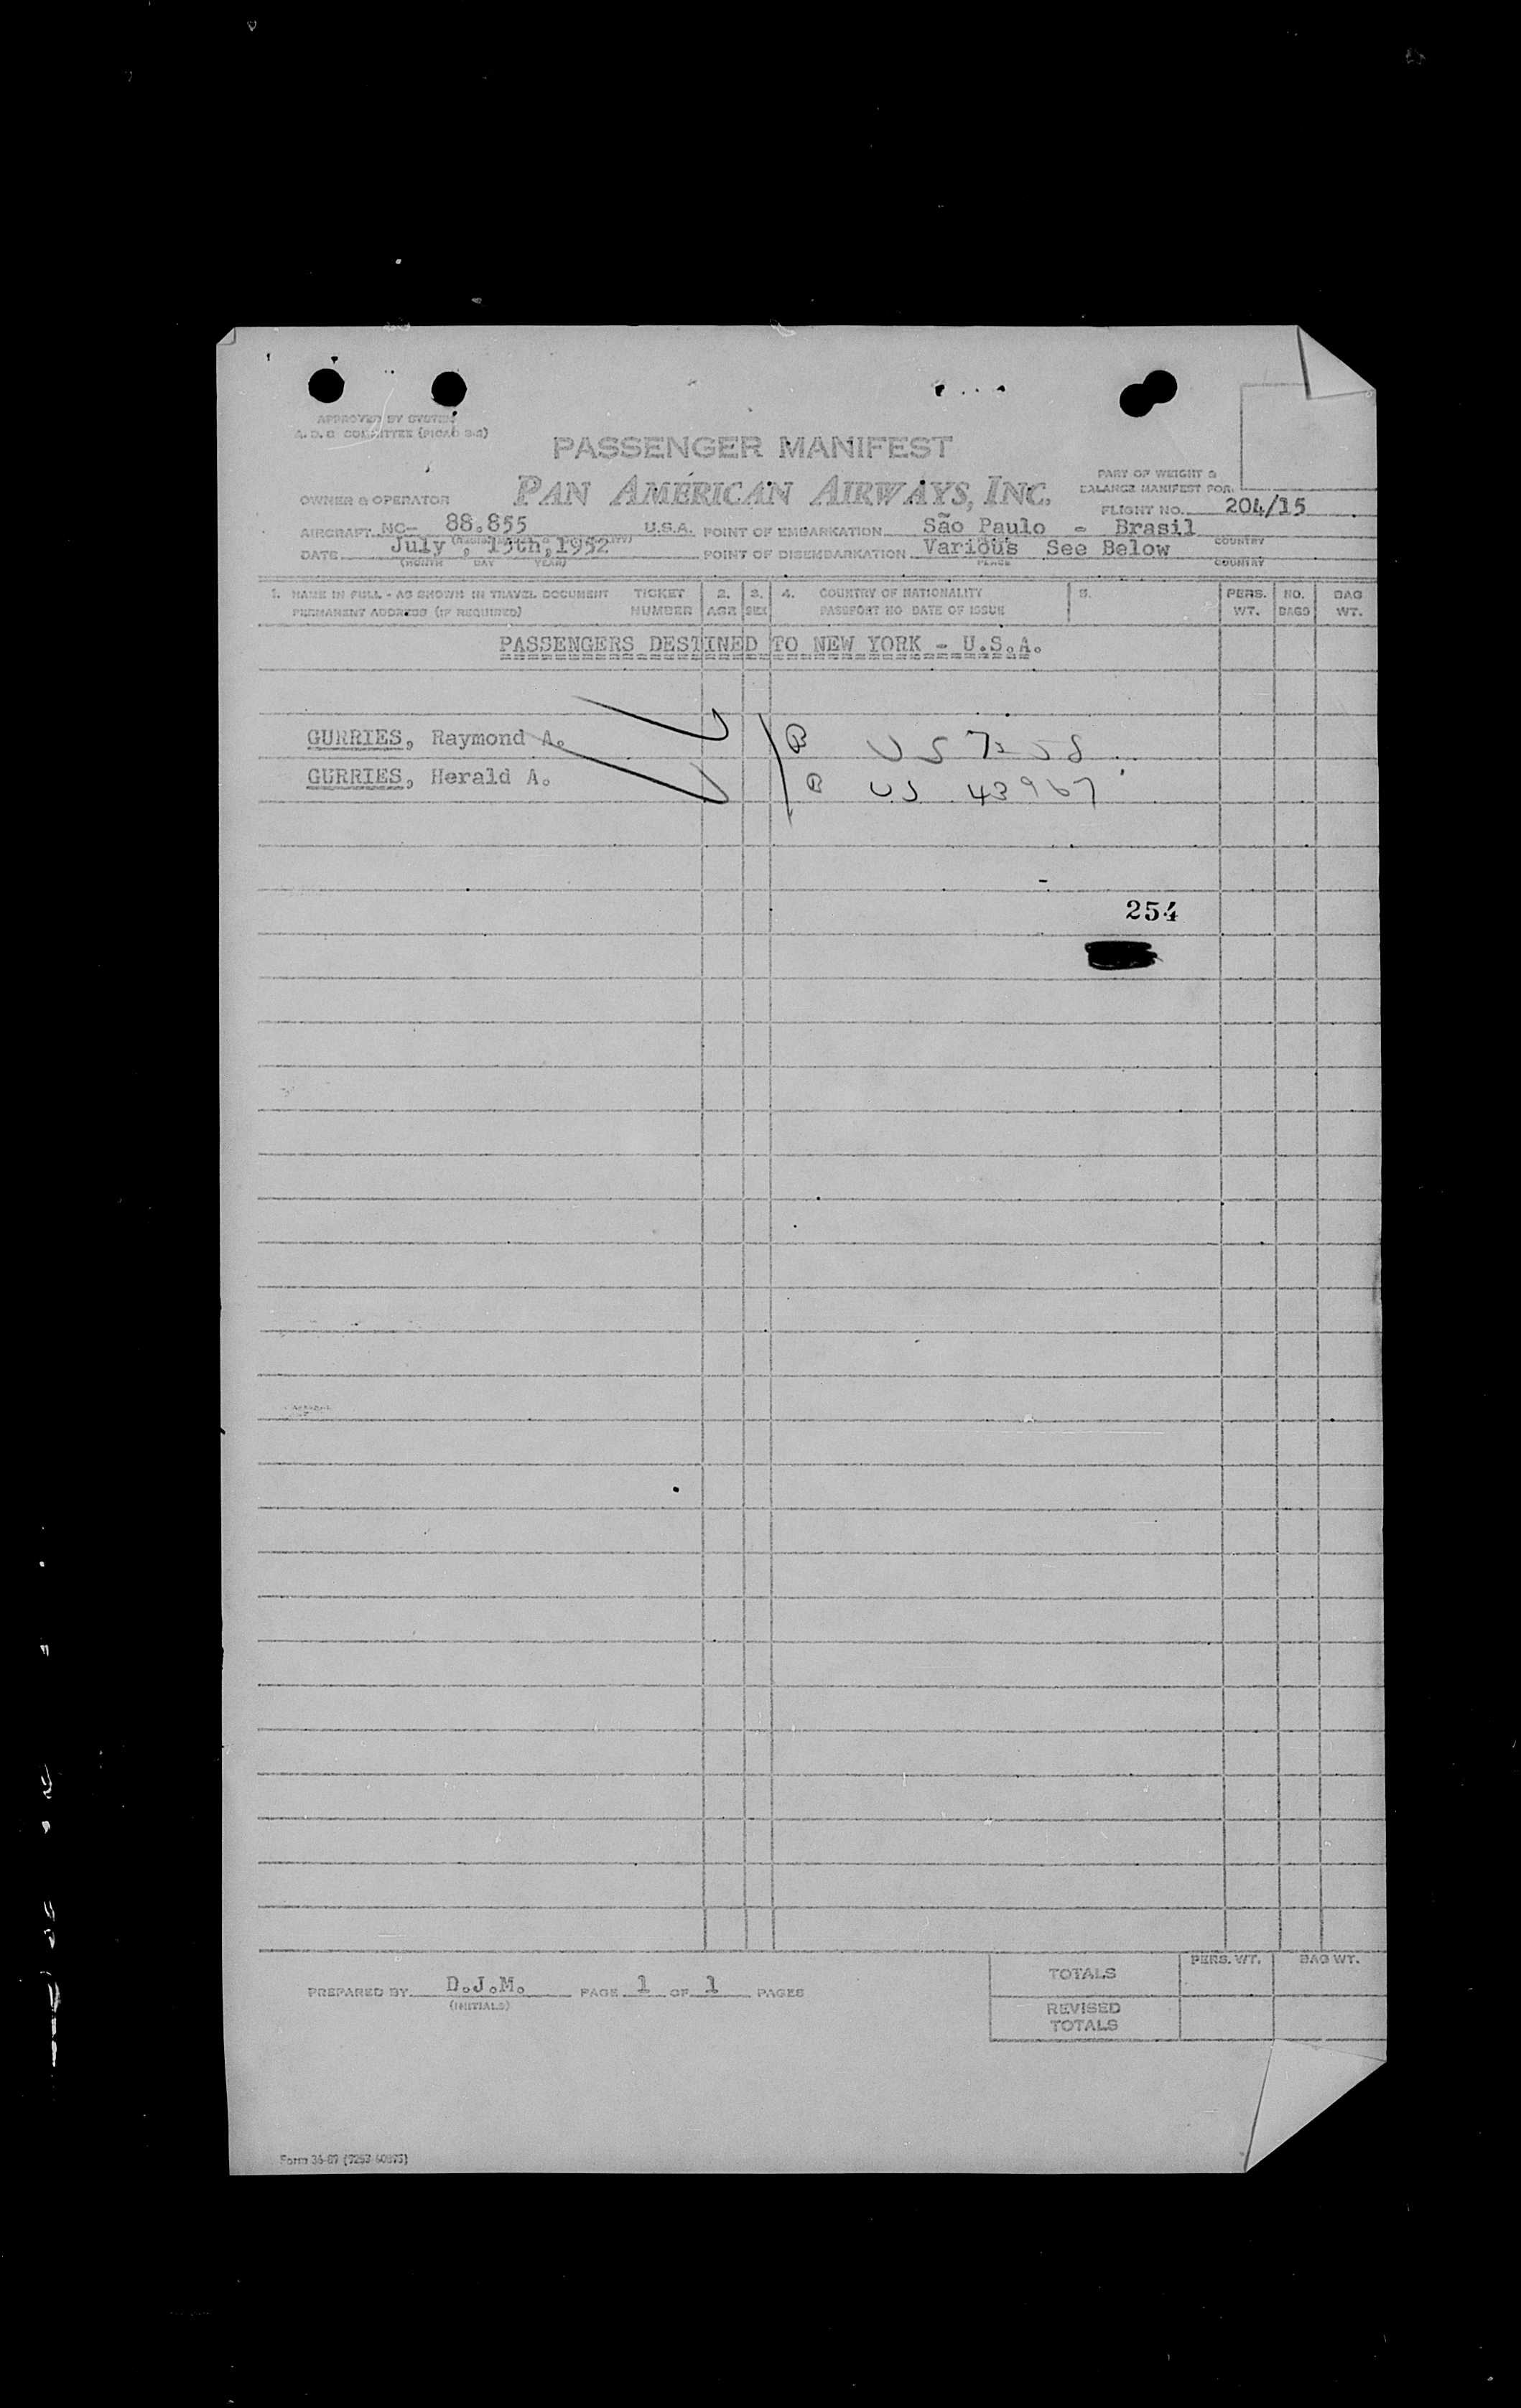 APPROVED BY SYSTEM
A. D. C COMMITTEE (PICAO 3-2)
PASSENGER MANIFEST
PAN AMERICAN AIRWAYS, INC.
OWNER & OPERATOR
PART OF WEIGHT &
BALANCE MANIFEST FOR:
FLIGHT NO. 204/15
AIRCRAFT NC- 88.855 U.S.A. POINT OF EMBARKATION São Paulo - Brasil
COUNTRY
DATE July , 15th, 1952 POINT OF DISEMBARKATION Various See Below
(MONTH DAY YEAR) PLACE COUNTRY
1. NAME IN FULL - AS SHOWN IN TRAVEL DOCUMENT TICKET 2. 3. 4. COUNTRY OF NATIONALITY 5. PERS. NO. BAG
PERMANENT ADDRESS (IF REQUIRED) NUMBER AGE SEX PASSPORT NO DATE OF ISSUE WT. BAGS WT.
PASSENGERS DESTINED TO NEW YORK - U.S.A.
GURRIES, Raymond A. B US
GURRIES, Herald A. B US 43967
254
PREPARED BY D.J.M. PAGE 1 OF 1 PAGES
(INITIALS)
TOTALS PERS. WT. BAG WT.
REVISED
TOTALS
Form 36-87